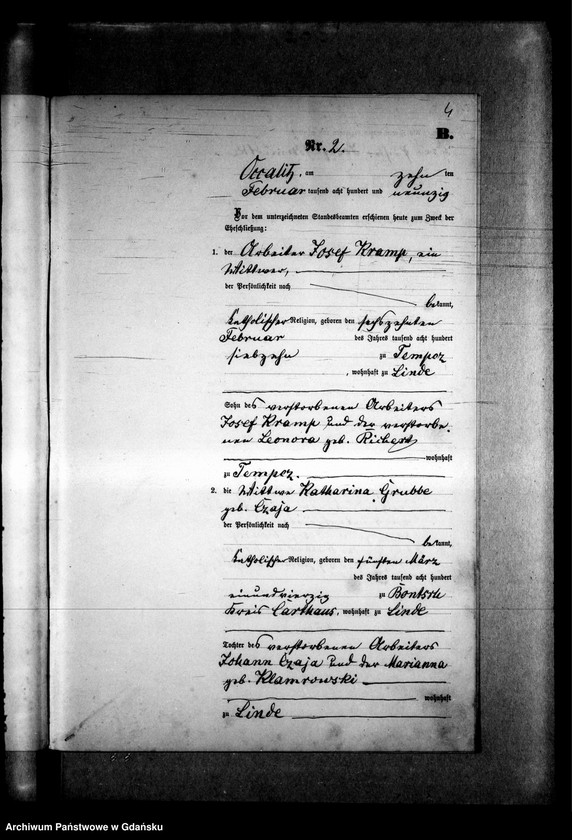 4
B.
Nr. 2.
Occalitz, am zehn ten
Februar tausend acht hundert und neunzig
Vor dem unterzeichneten Standesbeamten erschienen heute zum Zweck der
Eheschließung:
1. der Arbeiter Josef Kramp, ein
Wittwer,
der Persönlichkeit nach
bekannt,
katholischer Religion, geboren den sechszehnten
Februar des Jahres tausend acht hundert
siebzehn zu Tempcz
, wohnhaft zu Linde
Sohn des verstorbenen Arbeiters
Josef Kramp und der verstorbe-
nen Leonora geb. Richert
wohnhaft
zu Tempcz.
2. die Wittwe Katharina Grubbe
geb. Czaja
der Persönlichkeit nach
bekannt,
katholischer Religion, geboren den fünften März
des Jahres tausend acht hundert
einundvierzig zu Bontsch
Kreis Carthaus, wohnhaft zu Linde
Tochter des verstorbenen Arbeiters
Johann Czaja und der Marianna
geb. Klamrowski
wohnhaft
zu Linde
Archiwum Państwowe w Gdańsku